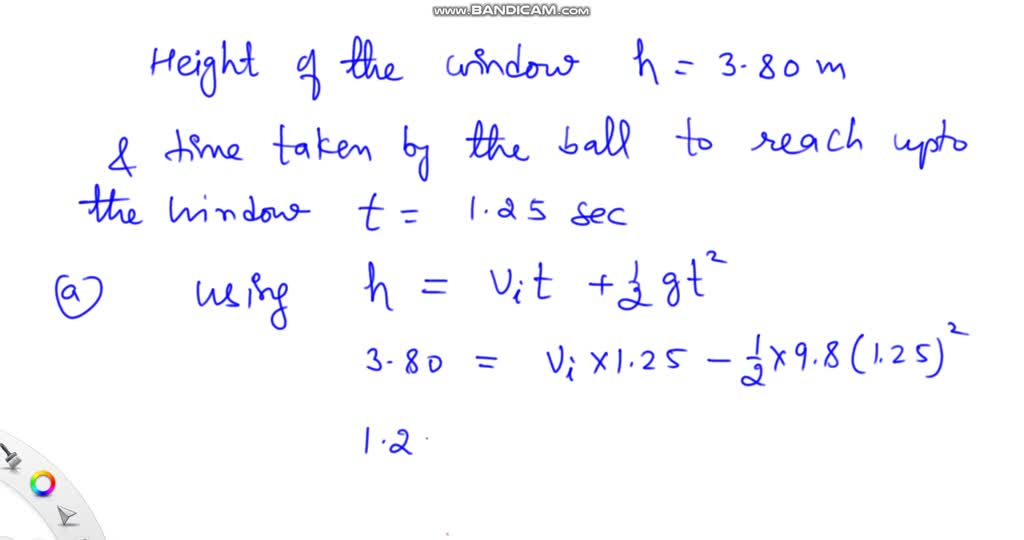 www.BANDICAM.com
Height of the window h = 3.80 m
& time taken by the ball to reach upto
the window t = 1.25 sec
(a) using h = vᵢt + ½ gt²
3.80 = vᵢ × 1.25 − ½ × 9.8 (1.25)²
1.2